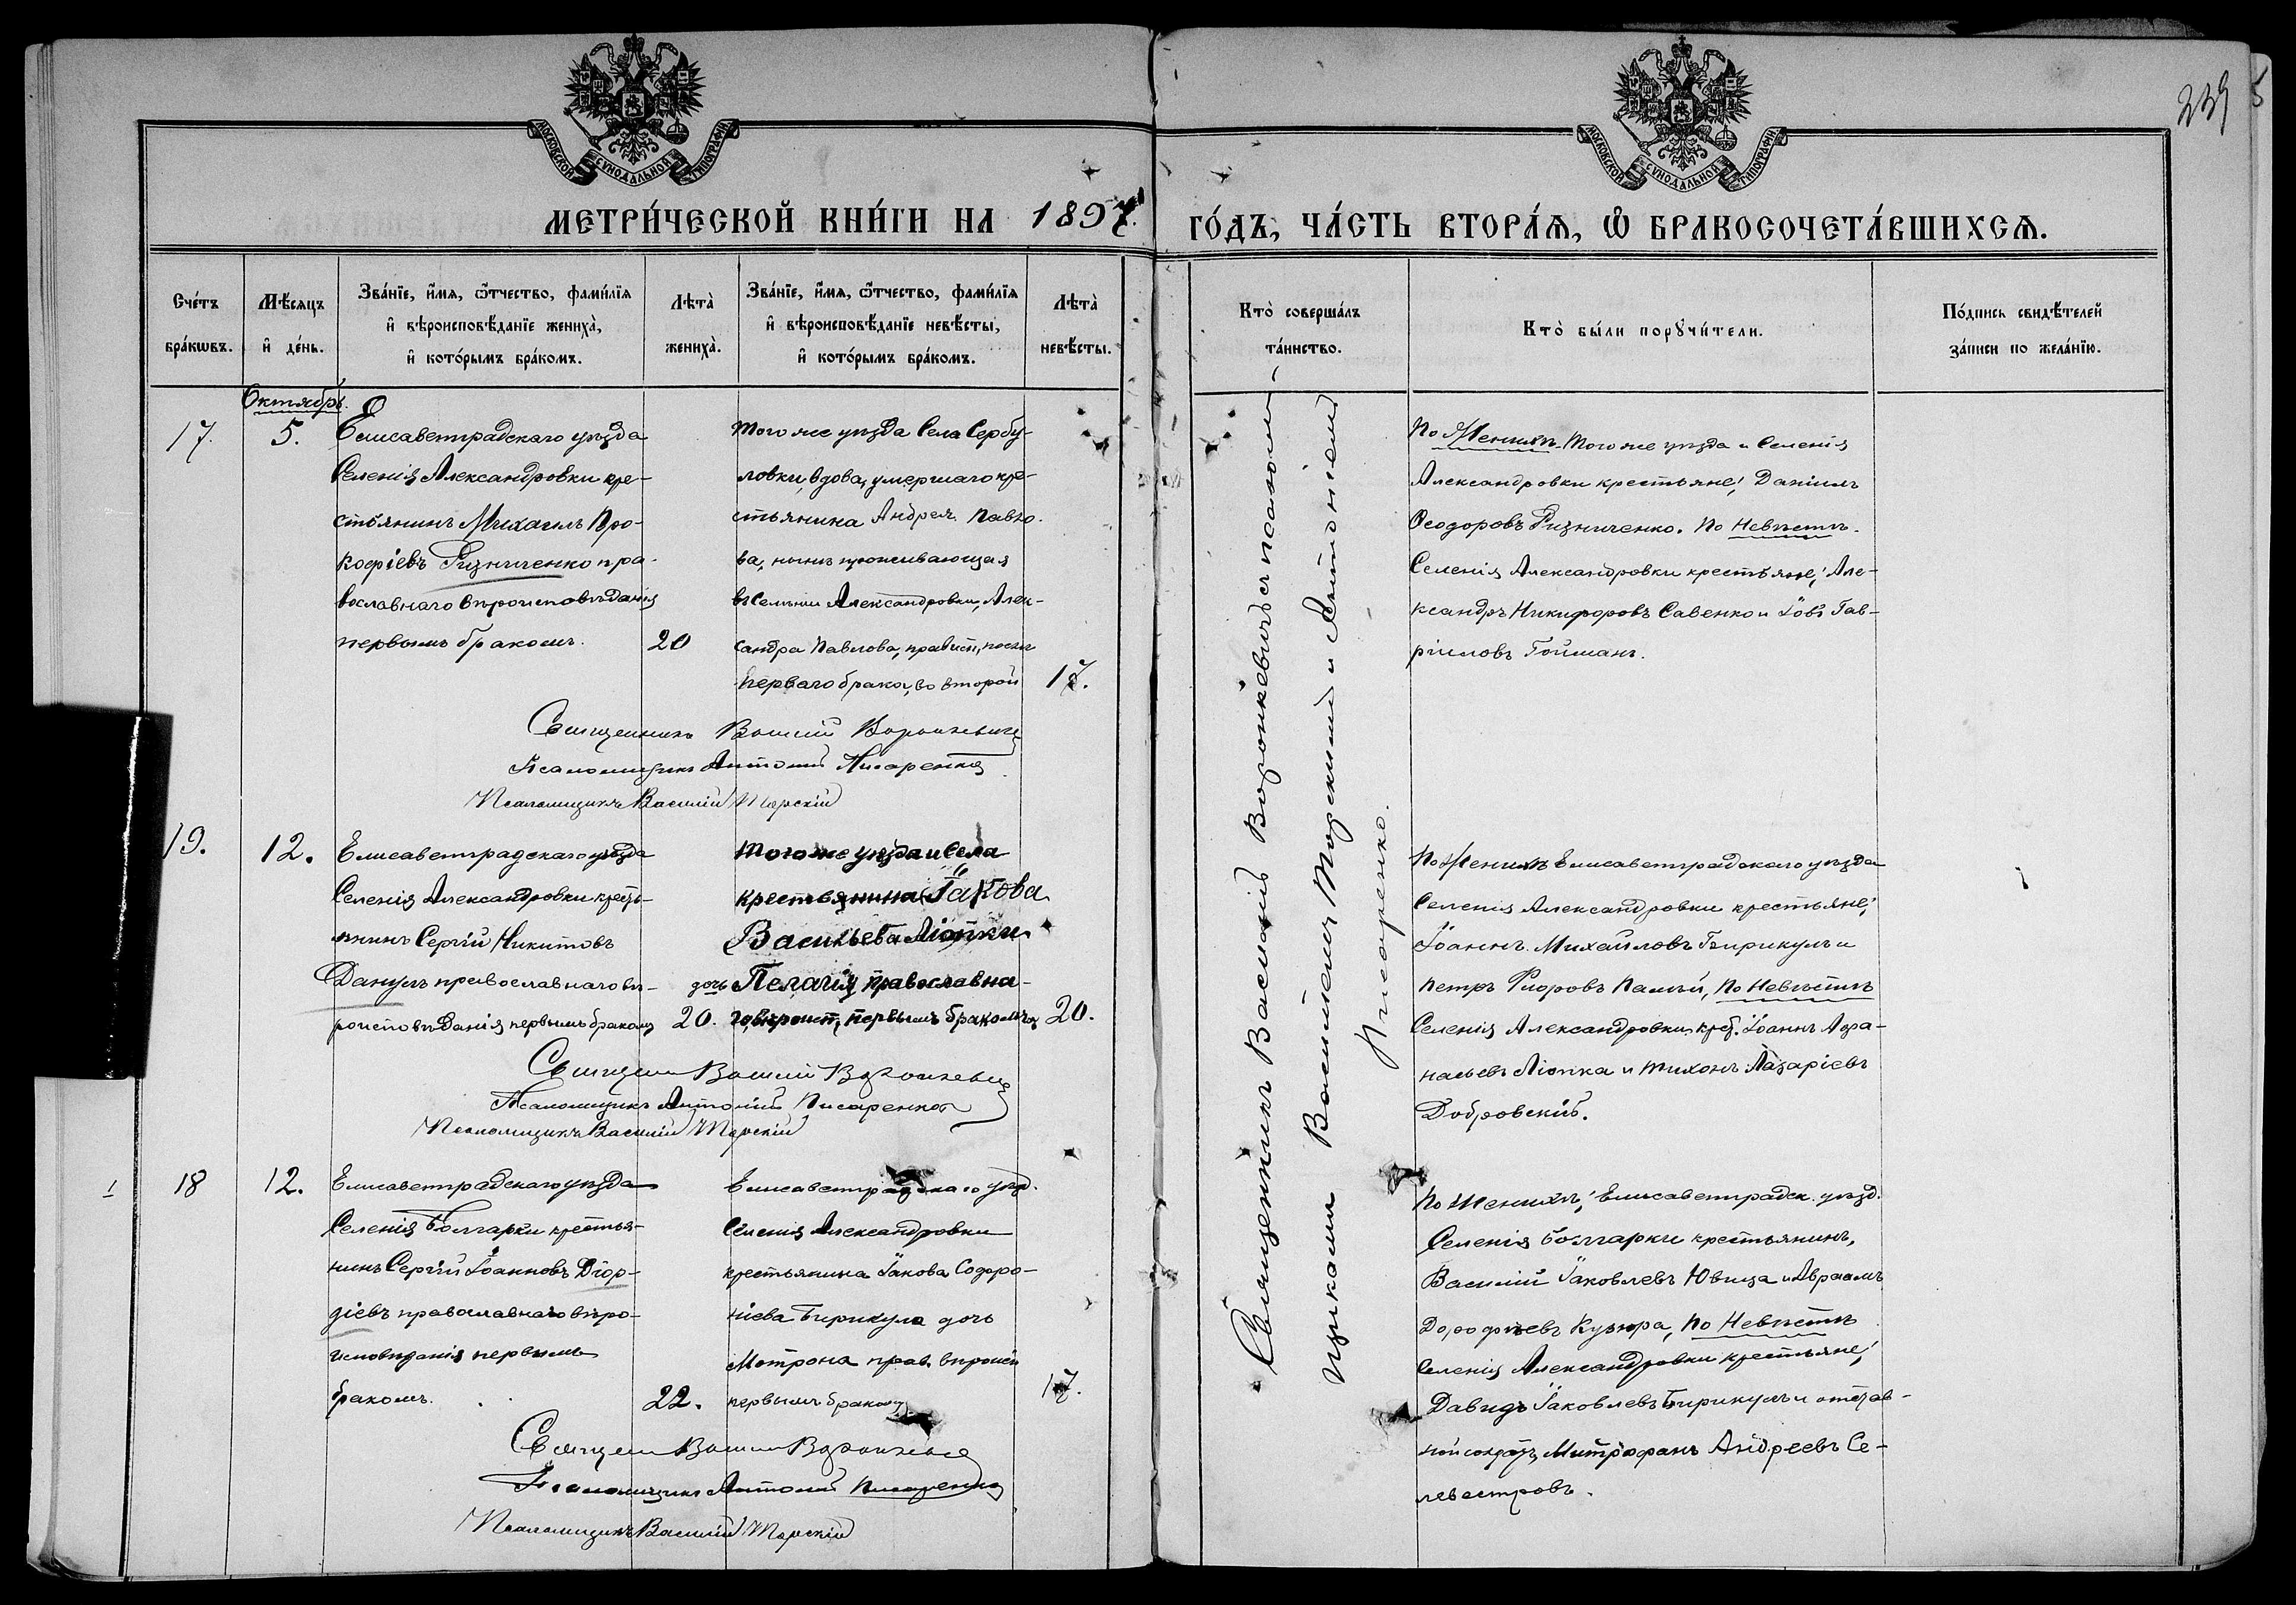 239
МОСКОВСКОЙ СУНОДАЛЬНОЙ ТИПОГРАФІИ
МОСКОВСКОЙ СУНОДАЛЬНОЙ ТИПОГРАФІИ
МЕТРИ́ЧЕСКОЙ КНИ́ГИ НА 1897 ГО́ДЪ, ЧА́СТЬ ВТОРА́Ѧ, Ѡ҆ БРАКОСОЧЕТА́ВШИХСѦ.
Сче́тъ бра́кѡвъ.
Мѣ́сяцъ и҆ де́нь.
Зва́нїе, и҆́мя, ѻ҆́тчество, фами́лїя
и҆ вѣроисповѣ́данїе жениха̀,
и҆ кото́рымъ бра́комъ.
Лѣта̀ жениха̀.
Зва́нїе, и҆́мя, ѻ҆́тчество, фами́лїя
и҆ вѣроисповѣ́данїе невѣ́сты,
и҆ кото́рымъ бра́комъ.
Лѣта̀ невѣ́сты.
Кто̀ соверша́лъ та́инство.
Кто̀ бы́ли порꙋчи́тели.
По́дпись свидѣ́телей за́писи по жела́нїю.
Октябрь.
17. 5.
Елисаветградскаго уѣзда
Селенія Александровки кре-
стьянинъ Михаилъ Про-
кофіевъ Ризниченко пра-
вославнаго вѣроисповѣданія
первымъ бракомъ. 20
того же уѣзда Села Сербу-
ловки, вдова, умершаго кре-
стьянина Андрея Павло-
ва, нынѣ проживающая
въ Селеніи Александровки, Алек-
сандра Павлова, правосл, послѣ
перваго брака, во второй 17.
По Женихѣ. Того же уѣзда и Селенія
Александровки крестьяне; Даніилъ
Ѳеодоровъ Ризниченко. По Невѣстѣ.
Селенія Александровки крестьяне; Але-
ксандръ Никифоровъ Савенко и Іовъ Гав-
ріиловъ Гойманъ.
Священникъ Василій Воронкевичъ
Псаломщикъ Антоній Писаренко
Псаломщикъ Василій Торскій
19. 12.
Елисаветградскаго уѣзда
Селенія Александровки кресть-
янинъ Сергій Никитовъ
Данулъ православнаго вѣ-
роисповѣданія первымъ бракомъ 20.
того же уѣзда и Села
крестьянина Іакова
Васильева Ліопки
дочь Пелагія православна-
го вѣроисп, первымъ бракомъ 20.
По Женихѣ Елисаветградскаго уѣзда
Селенія Александровки крестьяне;
Іоаннъ Михайловъ Бирикулъ и
Петръ Флоровъ Памѣй, По Невѣстѣ
Селенія Александровки крес. Іоаннъ Афа-
насьевъ Ліопка и Тихонъ Лазаріевъ
Добровскій.
Священ Василій Воронкевичъ
Псаломщикъ Антоній Писаренко
Псаломщикъ Василій Торскій
18 12.
Елисаветградскаго уѣзда
Селенія Болгарки крестья-
нинъ Сергій Іоанновъ Діор-
діевъ православнаго вѣро-
исповѣданія первымъ
бракомъ. 22.
Елисаветградскаго уѣзд.
Селенія Александровки
крестьянина Іакова Содоро-
ніева Бирикула дочь
Мотрона прав. вѣроисп
первымъ бракомъ 17.
По Женихѣ; Елисаветградск. уѣзд.
Селенія Болгарки крестьянинъ,
Василій Іаковлевъ Ювица и Авраамъ
Дорофѣевъ Кузюра, По Невѣстѣ
Селенія Александровки крестьяне;
Давидъ Іаковлевъ Бирикулъ и отстав-
ной солдатъ Митрофанъ Андреевъ Се-
левестровъ.
Священ Василій Воронкевичъ
Псаломщикъ Антоній Писаренко
Псаломщикъ Василій Торскій
Священникъ Василій Воронкевичъ съ псалом-
щиками Василіемъ Торскимъ и Антоніемъ
Писаренко.